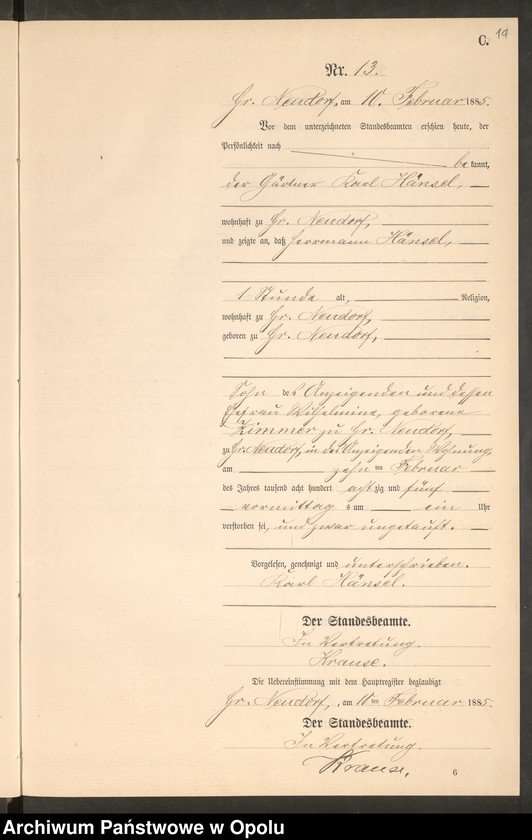 C. 19
Nr. 13.
Gr. Neudorf, am 10. Februar 1885.
Vor dem unterzeichneten Standesbeamten erschien heute, der
Persönlichkeit nach
be kannt,
der Gärtner Karl Hänsel,
wohnhaft zu Gr. Neudorf,
und zeigte an, daß Herrmann Hänsel,
1 Stunde alt, Religion,
wohnhaft zu Gr. Neudorf,
geboren zu Gr. Neudorf,
Sohn des Anzeigenden und dessen
Ehefrau Wilhelmine, geborene
Zimmer zu Gr. Neudorf,
zu Gr. Neudorf, in des Anzeigenden Wohnung,
am zehn ten Februar
des Jahres tausend acht hundert acht zig und fünf
vormittag s um ein Uhr
verstorben sei, und zwar ungetauft.
Vorgelesen, genehmigt und unterschrieben.
Karl Hänsel.
Der Standesbeamte.
In Vertretung.
Krause.
Die Uebereinstimmung mit dem Hauptregister beglaubigt
Gr. Neudorf, am 10ten Februar 1885.
Der Standesbeamte.
In Vertretung.
Krause.
6
Archiwum Państwowe w Opolu